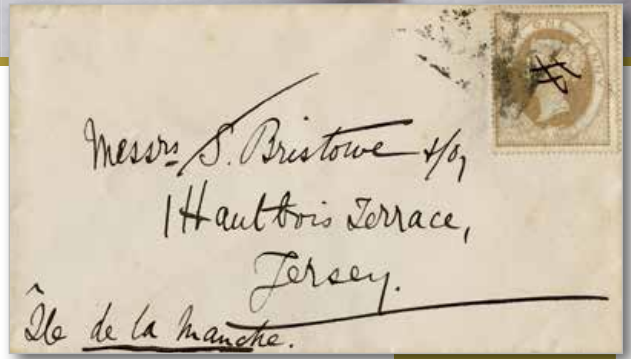 Messrs S. Bristowe &/o,
1 Hautbois Terrace,
Jersey.
Île de la Manche.